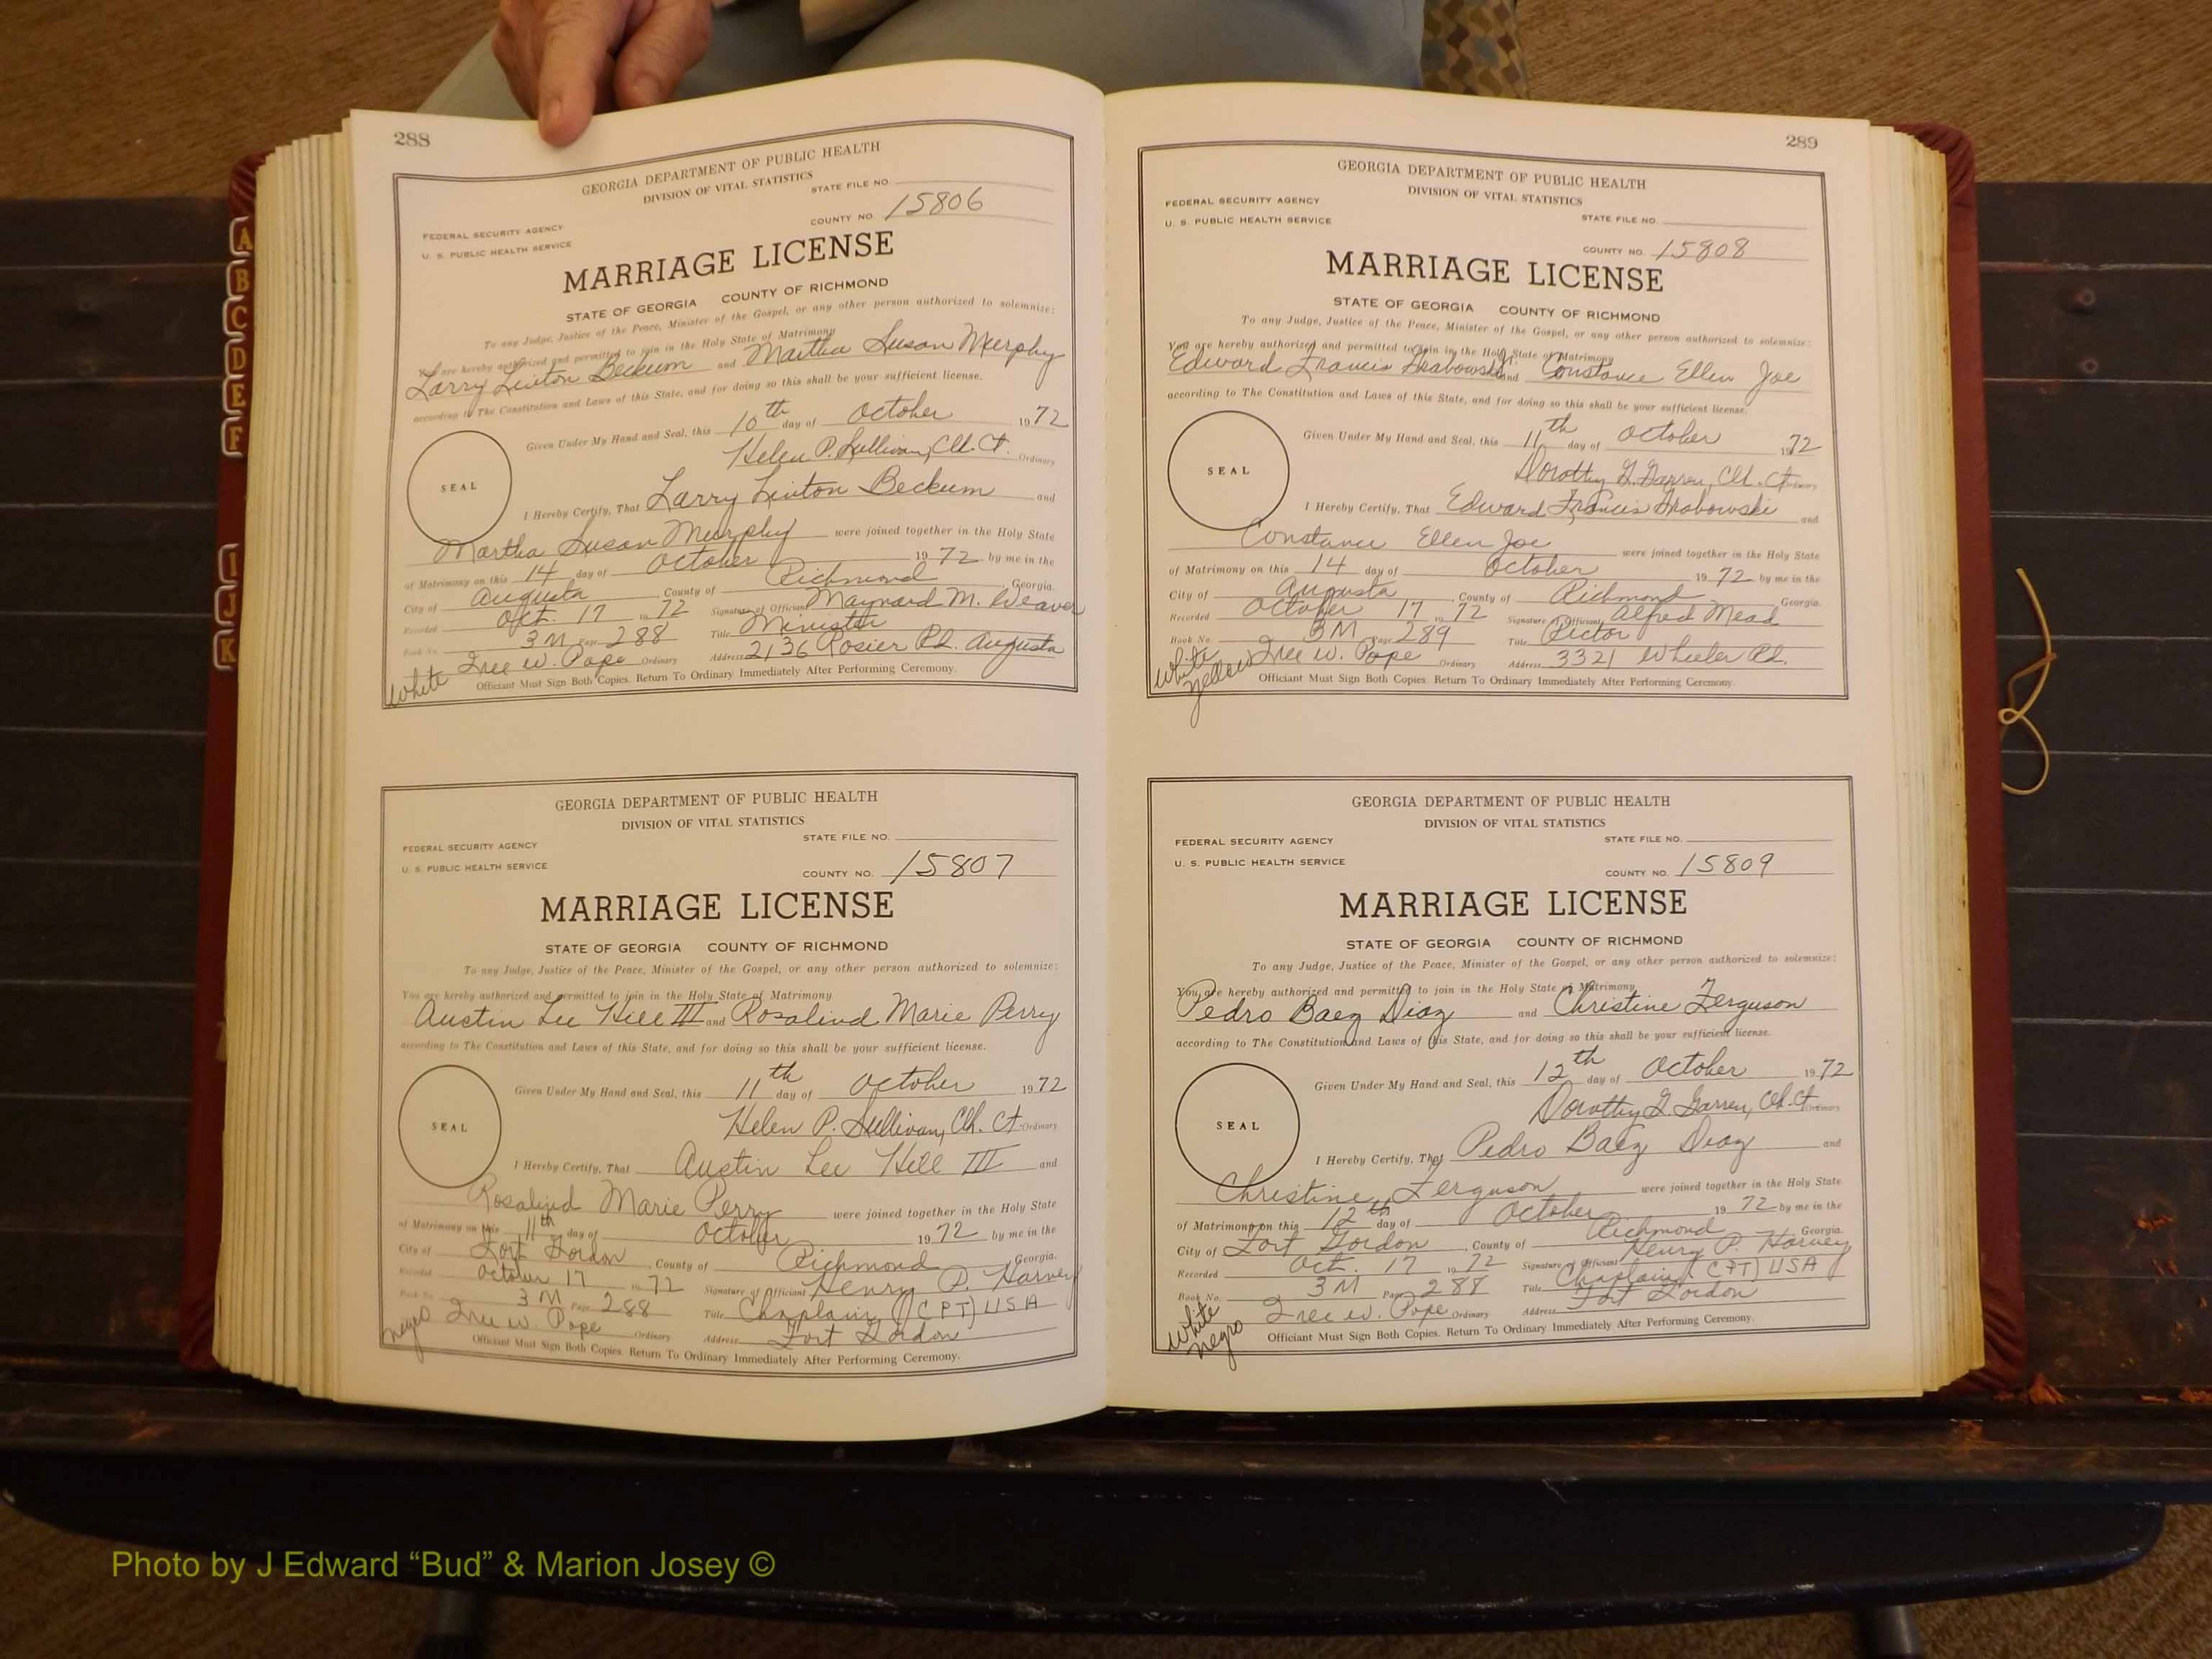 288
GEORGIA DEPARTMENT OF PUBLIC HEALTH
DIVISION OF VITAL STATISTICS
STATE FILE NO.
COUNTY NO. 15806
FEDERAL SECURITY AGENCY
U. S. PUBLIC HEALTH SERVICE
MARRIAGE LICENSE
STATE OF GEORGIA COUNTY OF RICHMOND
To any Judge, Justice of the Peace, Minister of the Gospel, or any other person authorized to solemnize:
You are hereby authorized and permitted to join in the Holy State of Matrimony
Larry Linton Beckum and Martha Susan Murphy
according to The Constitution and Laws of this State, and for doing so this shall be your sufficient license.
Given Under My Hand and Seal, this 10th day of October 1972
Helen P. Sullivan, Clk. Ct. Ordinary
SEAL
I Hereby Certify, That Larry Linton Beckum and
Martha Susan Murphy were joined together in the Holy State
of Matrimony on this 14 day of October 1972 by me in the
City of Augusta, County of Richmond, Georgia.
Recorded Oct. 17 1972 Signature of Official Maynard M. Weaver
Book No. 3M Page 288 Title Minister
Ordinary Address 2136 Rosier Rd. Augusta
White
Officiant Must Sign Both Copies. Return To Ordinary Immediately After Performing Ceremony.
GEORGIA DEPARTMENT OF PUBLIC HEALTH
DIVISION OF VITAL STATISTICS
STATE FILE NO.
FEDERAL SECURITY AGENCY
U. S. PUBLIC HEALTH SERVICE
COUNTY NO. 15807
MARRIAGE LICENSE
STATE OF GEORGIA COUNTY OF RICHMOND
To any Judge, Justice of the Peace, Minister of the Gospel, or any other person authorized to solemnize:
You are hereby authorized and permitted to join in the Holy State of Matrimony
Austin Lee Hill III and Rosalind Marie Perry
according to The Constitution and Laws of this State, and for doing so this shall be your sufficient license.
Given Under My Hand and Seal, this 11th day of October 1972
Helen P. Sullivan, Clk. Ct. Ordinary
SEAL
I Hereby Certify, That Austin Lee Hill III and
Rosalind Marie Perry were joined together in the Holy State
of Matrimony on this 11th day of October 1972 by me in the
City of Fort Gordon, County of Richmond, Georgia.
Recorded October 17 1972 Signature of Officiant Henry P. Harvey
Book No. 3M Page 288 Title Chaplain (CPT) USA
W. Pope Ordinary Address Fort Gordon
negro
Officiant Must Sign Both Copies. Return To Ordinary Immediately After Performing Ceremony.
289
GEORGIA DEPARTMENT OF PUBLIC HEALTH
DIVISION OF VITAL STATISTICS
FEDERAL SECURITY AGENCY
U. S. PUBLIC HEALTH SERVICE
STATE FILE NO.
COUNTY NO. 15808
MARRIAGE LICENSE
STATE OF GEORGIA COUNTY OF RICHMOND
To any Judge, Justice of the Peace, Minister of the Gospel, or any other person authorized to solemnize:
You are hereby authorized and permitted to join in the Holy State of Matrimony
Edward Francis and Constance Ellen Joe
according to The Constitution and Laws of this State, and for doing so this shall be your sufficient license.
Given Under My Hand and Seal, this 11th day of October 1972
Dorothy G. Garren, Clk. Ct. Ordinary
SEAL
I Hereby Certify, That Edward Francis and
Constance Ellen Joe were joined together in the Holy State
of Matrimony on this 14 day of October 1972 by me in the
City of Augusta, County of Richmond Georgia.
Recorded October 17 1972 Signature of Officiant Alfred Mead
Book No. 3M Page 289 Title Rector
W. Pope Ordinary Address 3321 Wheeler Rd.
White
Yellow
Officiant Must Sign Both Copies. Return To Ordinary Immediately After Performing Ceremony.
GEORGIA DEPARTMENT OF PUBLIC HEALTH
DIVISION OF VITAL STATISTICS
FEDERAL SECURITY AGENCY
STATE FILE NO.
U. S. PUBLIC HEALTH SERVICE
COUNTY NO. 15809
MARRIAGE LICENSE
STATE OF GEORGIA COUNTY OF RICHMOND
To any Judge, Justice of the Peace, Minister of the Gospel, or any other person authorized to solemnize:
You are hereby authorized and permitted to join in the Holy State of Matrimony
Pedro Baez Diaz and Christine Ferguson
according to The Constitution and Laws of this State, and for doing so this shall be your sufficient license.
Given Under My Hand and Seal, this 12th day of October 1972
Dorothy G. Garren, Clk. Ct. Ordinary
SEAL
I Hereby Certify, That Pedro Baez Diaz and
Christine Ferguson were joined together in the Holy State
of Matrimony on this 12th day of October 1972 by me in the
City of Fort Gordon, County of Richmond, Georgia.
Recorded Oct. 17 1972 Signature of Officiant Henry P. Harvey
Book No. 3M Page Title Chaplain (CPT) USA
W. Pope Ordinary Address Fort Gordon
White
negro
Officiant Must Sign Both Copies. Return To Ordinary Immediately After Performing Ceremony.
A
B
C
D
E
F
I
J
K
Photo by J Edward “Bud” & Marion Josey ©